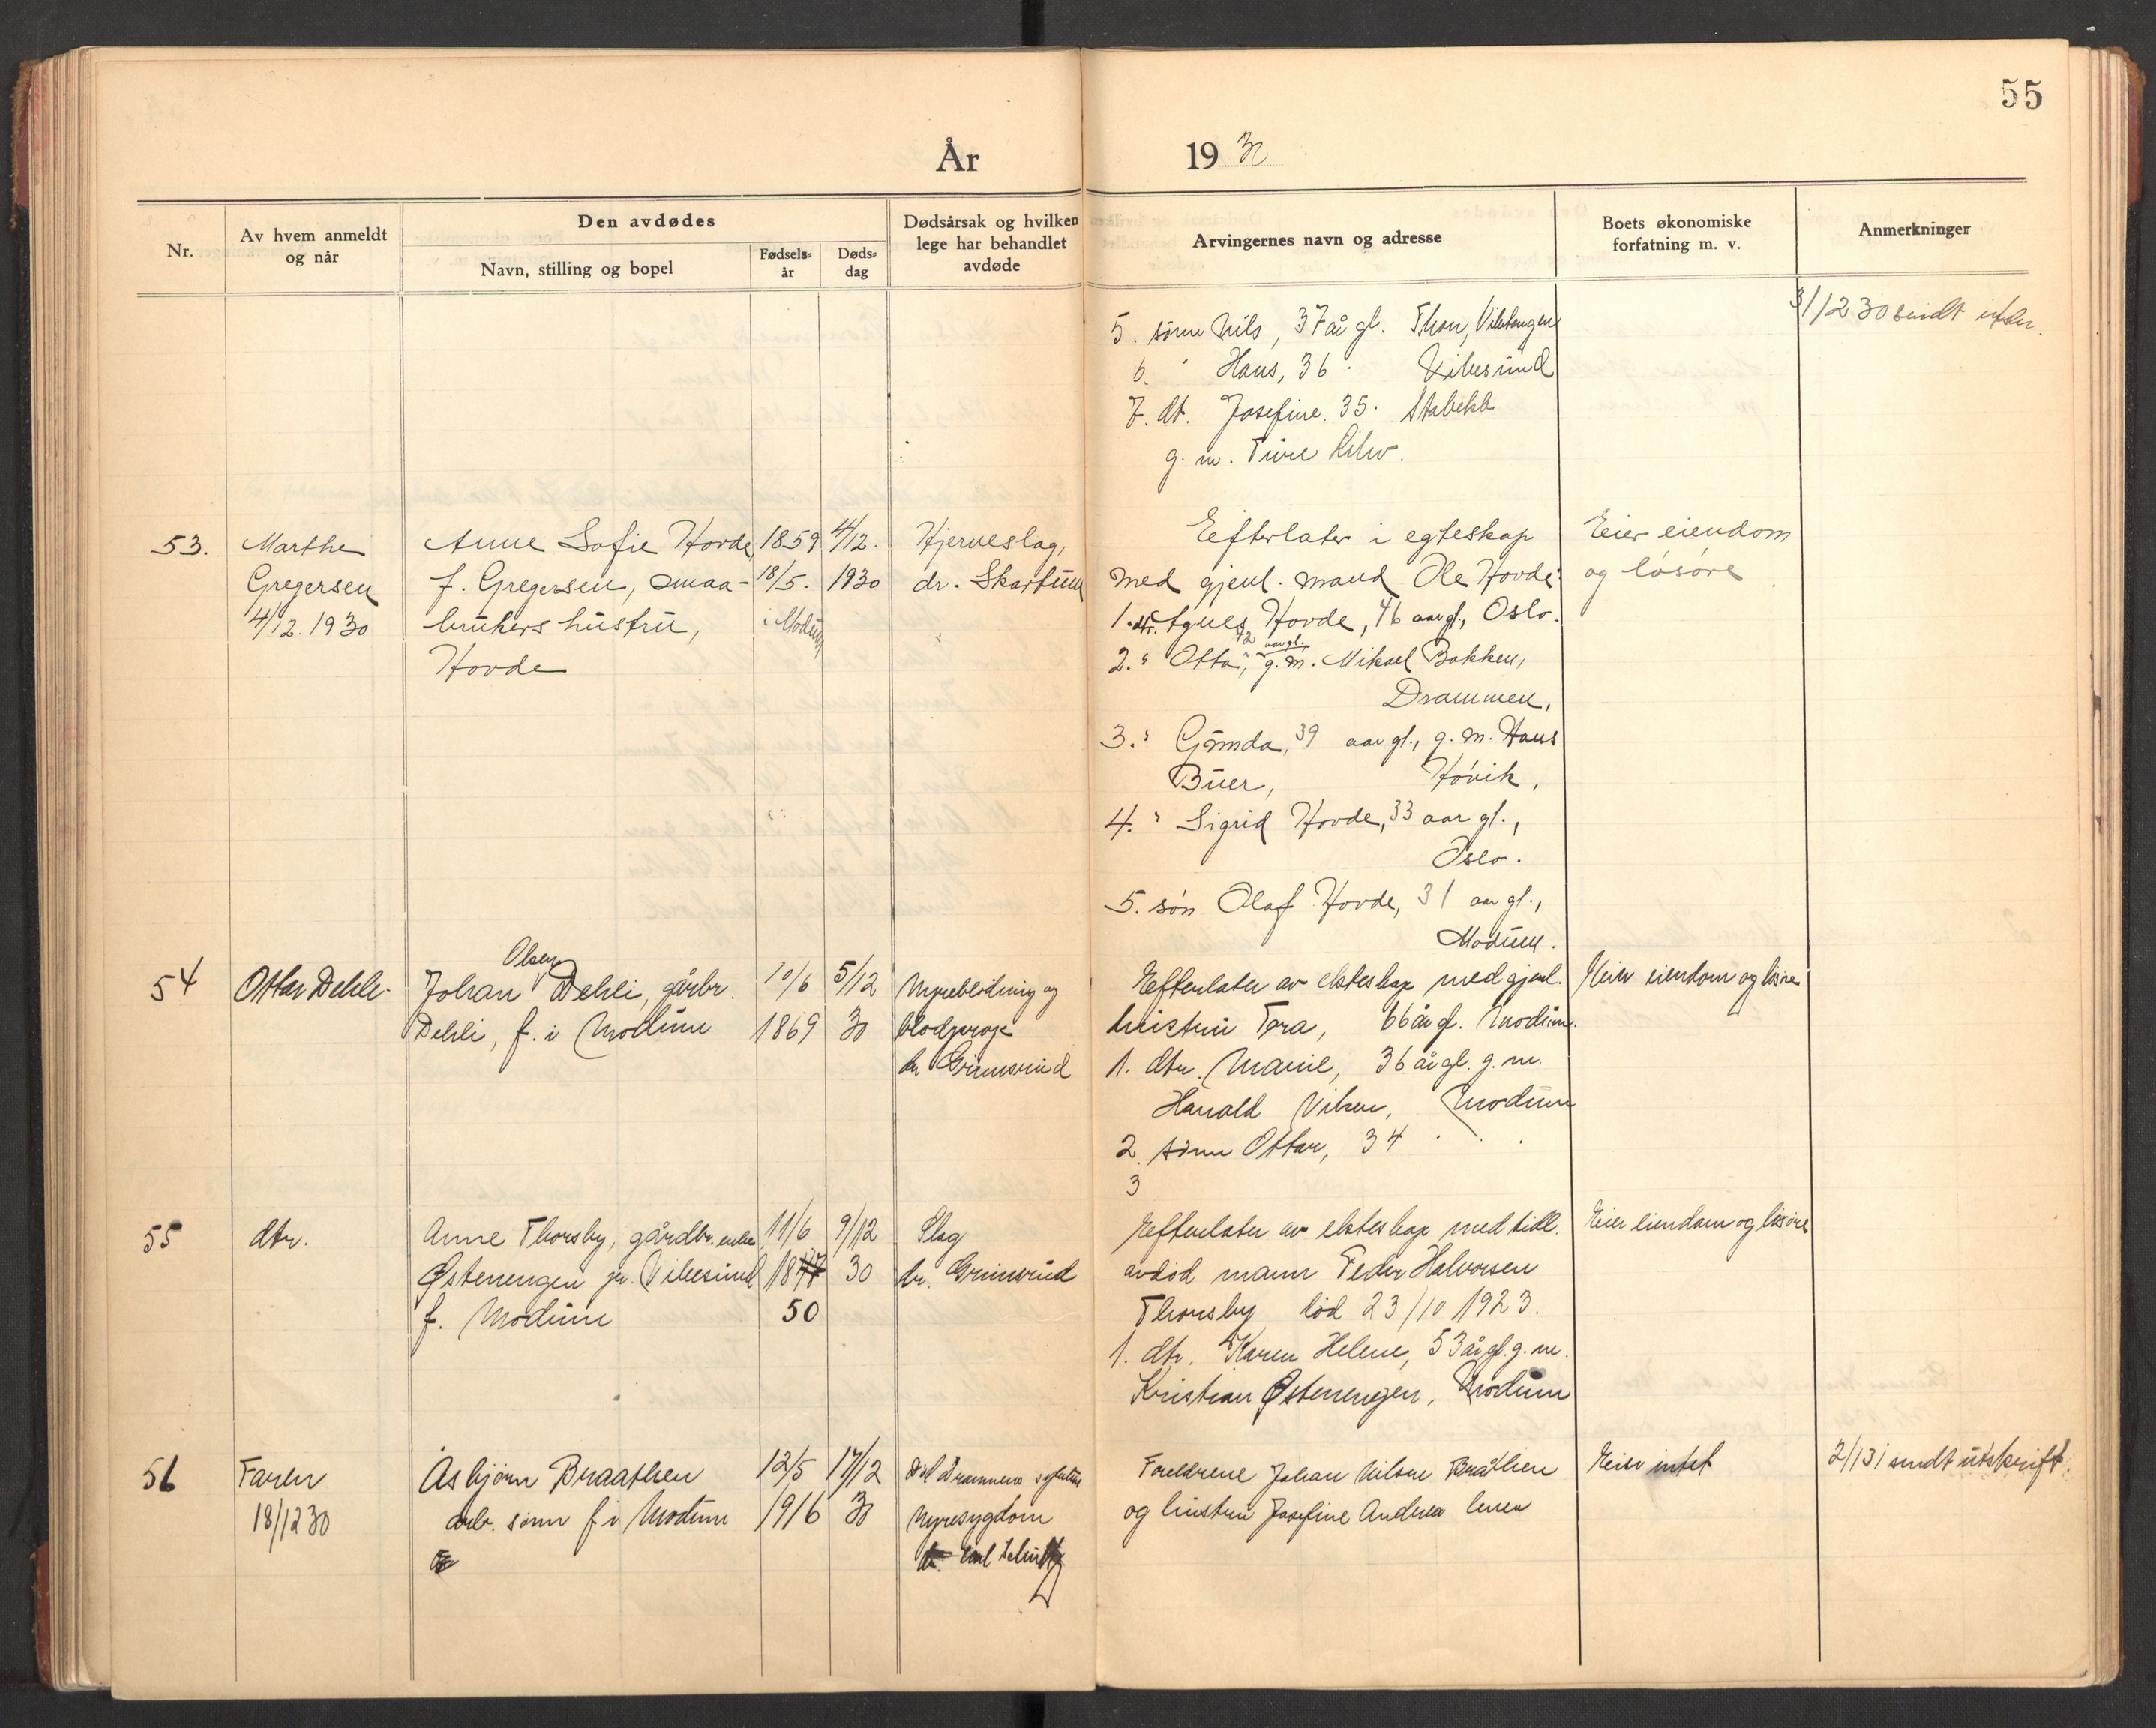 55
År 1930
Nr.
Av hvem anmeldt
og når
Den avdødes
Navn, stilling og bopel
Fødsels-
år
Døds-
dag
Dødsårsak og hvilken
lege har behandlet
avdøde
Arvingernes navn og adresse
Boets økonomiske
forfatning m. v.
Anmerkninger
5. sønn Nils, 37 år gl. Thon, Viketangen
6. " Hans, 36 " Vikesund
7. dt. Josefine. 35. Stabekk
g. m. Ture
31/12 30 sendt
53.
Marthe
Gregersen
4/12. 1930
Anne Sofie Hovde,
f. Gregersen, smaa-
brukers hustru,
Hovde
1859
18/5.
i Modum
4/12.
1930
Hjerneslag,
dr. Skartum
Eifterlater i egteskap
med gjenl. mand Ole Hovde:
1. dtr. Agnes Hovde, 46 aar gl., Oslo.
2. " Otta, 42 aar gl. g. m. Mikael Bakken,
Drammen,
3. " Gunda, 39 aar gl., g. m. Hans
Buer, Høvik,
4. " Sigrid Hovde, 33 aar gl.,
Oslo.
5. søn Olaf Hovde, 31 aar gl.,
Modum.
Eier eiendom
og løsøre
54
Ottar Dehli.
Olsen
Johan Dehli, gårbr.
Dehli, f. i Modum
10/6
1869
5/12
30
Nyreblødning og
blodpropp
dr Grimsrud
Efterlater av ekteskap med gjenl.
hustru Tora, 66 år gl. Modum.
1. dtr. Marie, 36 år gl. g. m.
Harald Viken, Modum
2. sønn Ottar, 34 " " "
3
Eier eiendom og løsøre
55
dtr.
Anne Thorsby, gårdbr. enke
Østenengen pr. Vikesund
f. Modum
11/6
1847
50
9/12
30
Slag
dr. Grimsrud
Efterlater av ekteskap med tidl.
avdød mann Peder Halvorsen
Thorsby død 23/10 1923.
1. dtr. Karen Helene, 53 år gl. g. m.
Kristian Østenengen, Modum
Eier eiendom og løsøre
56
Faren
18/12 30
Asbjørn Braathen
arb. sønn f i Modum
12/5
1916
17/12
30
Ved Drammens sykehus
Nyresygdom
dr. Emil Schultz
Foreldrene Johan Nilsen Bråthen
og hustru Josefine Andrea
Eier intet
2/1 31 sendt utskrift.